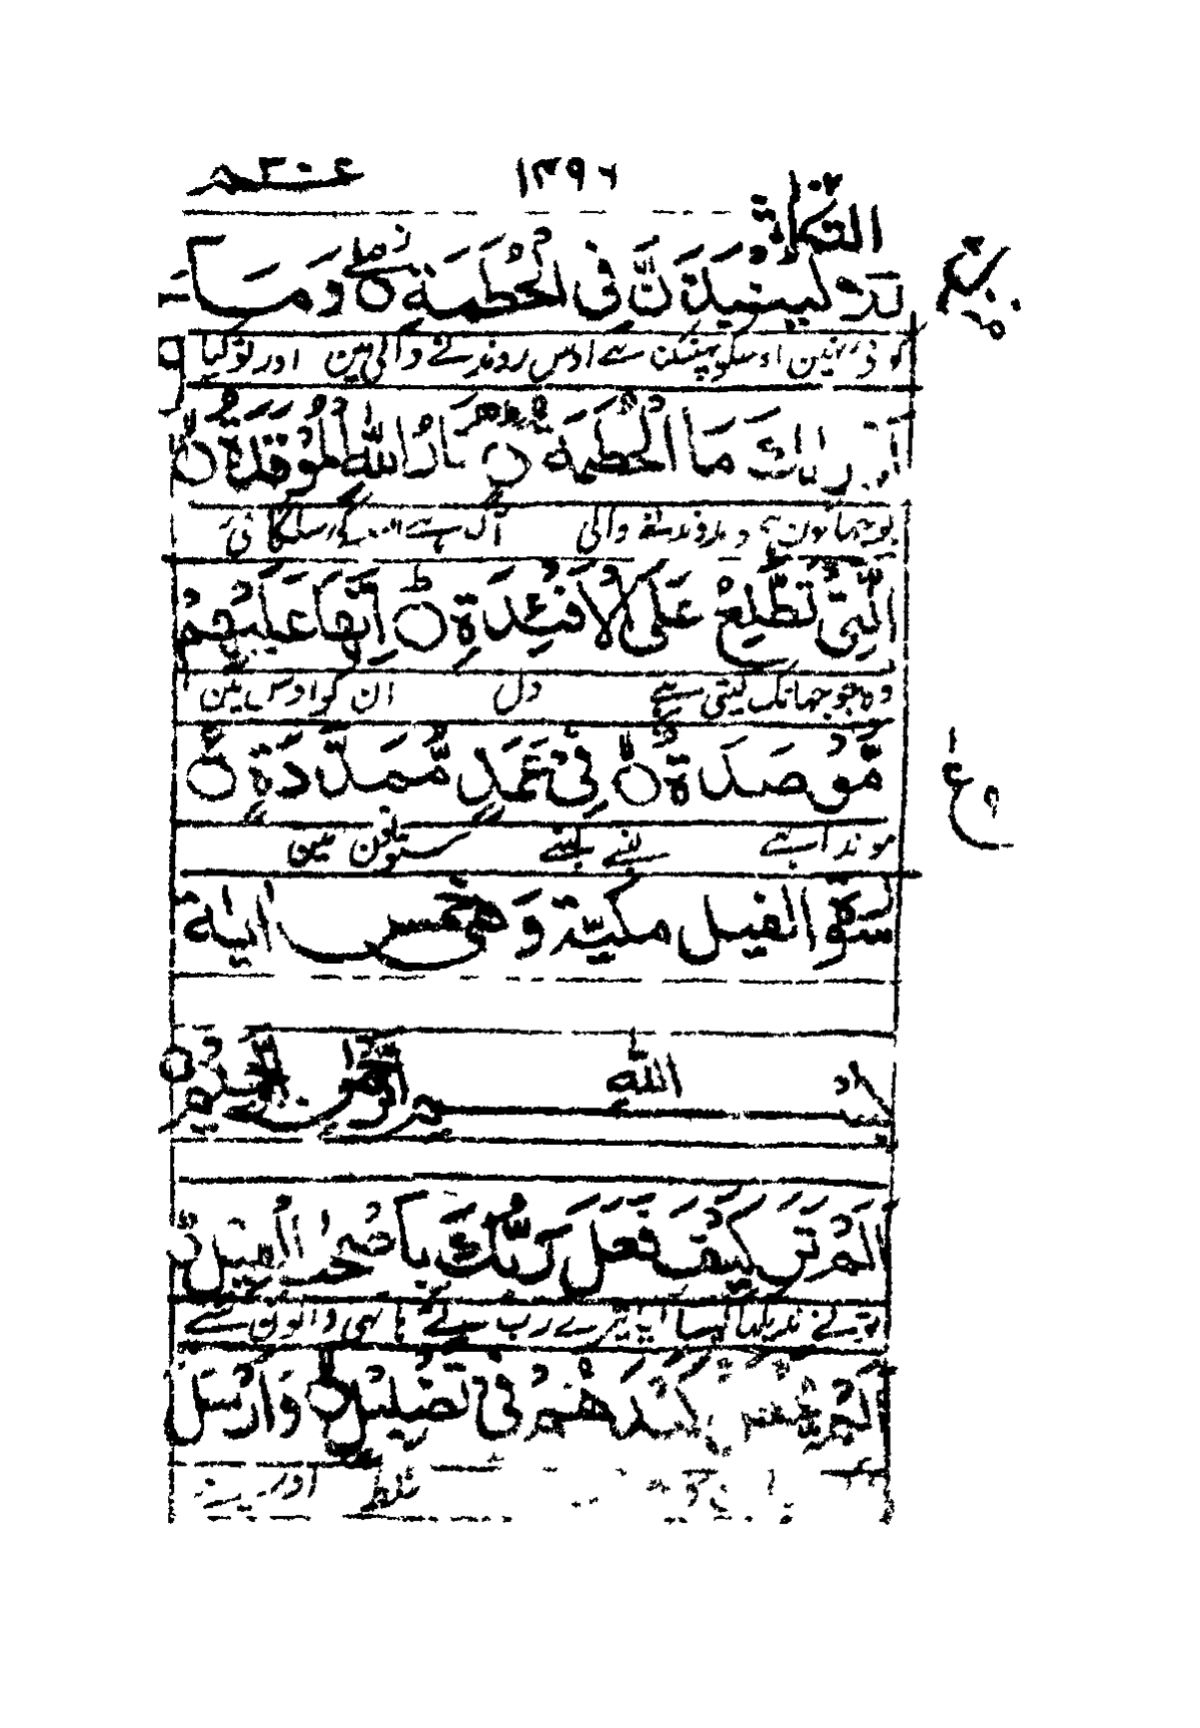 عم ٣٠
١٣٩٦
كَلَّا لَيُنْبَذَنَّ فِى الْحُطَمَةِ وَمَا
کوئی نہین اوسکو پھینکنا ہے اوس روندنے والی مین اور تو کیا
أَدْرٰىكَ مَا الْحُطَمَةُ نَارُ اللّٰهِ الْمُوْقَدَةُ
بوجھا کون ہے وہ روندنے والی آگ ہے اللہ کی سلگائی
الَّتِىْ تَطَّلِعُ عَلَى الْاَفْئِدَةِ اِنَّهَا عَلَيْهِمْ
وہ جو جھانک لیتی ہے دل ان کو اوس مین
مُّؤْصَدَةٌ فِىْ عَمَدٍ مُّمَدَّدَةٍ
موندا ہے لنبے لنبے ستونون مین
سورة الفيل مكيّة وهى خمس اٰية
بسم الله الرحمٰن الرحيم
اَلَمْ تَرَ كَيْفَ فَعَلَ رَبُّكَ بِاَصْحٰبِ الْفِيْلِ
تو نے ندیکھا کیسا کیا تیرے رب نے ہاتھی والون سے
اَلَمْ يَجْعَلْ كَيْدَهُمْ فِىْ تَضْلِيْلٍ وَاَرْسَلَ
غلط اور